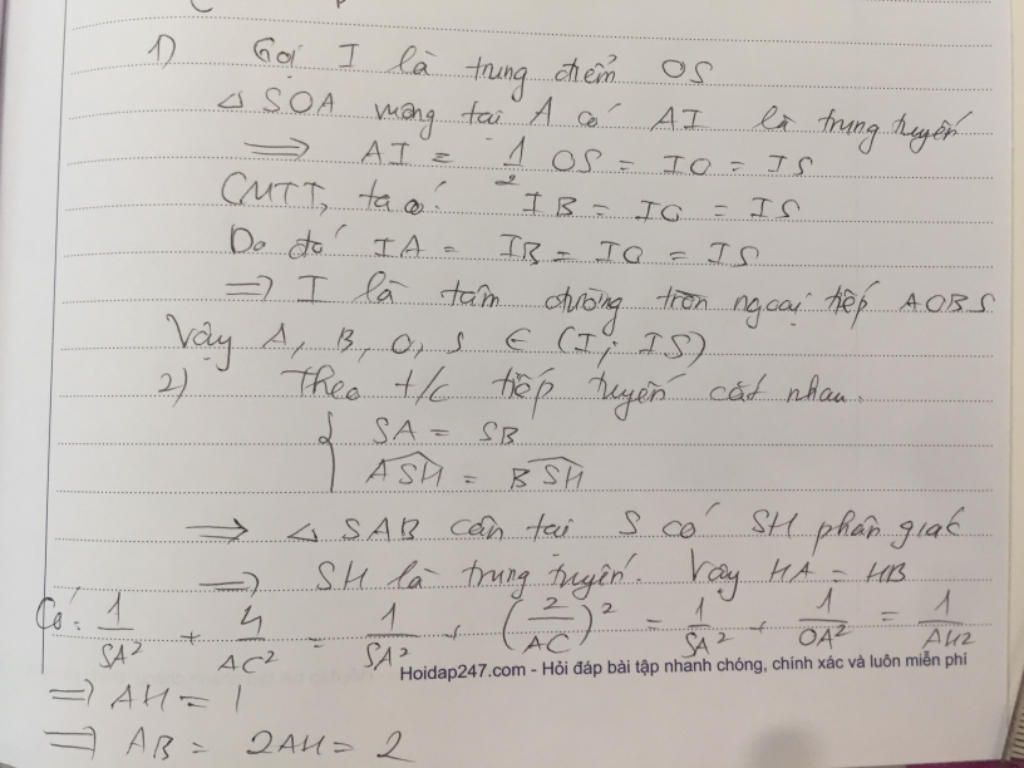 1) Gọi I là trung điểm OS
△ SOA vuông tại A có AI là trung tuyến
=> AI = 1/2 OS = IO = IS
CMTT, ta có: IB = IO = IS
Do đó IA = IB = IO = IS
=> I là tâm đường tròn ngoại tiếp AOBS
Vậy A, B, O, S ∈ (I; IS)
2) Theo t/c tiếp tuyến cắt nhau.
{ SA = SB
ASH^ = BSH^
=> △ SAB cân tại S có SH phân giác
=> SH là trung tuyến. Vậy HA = HB
Có: 1/SA² + 4/AC² = 1/SA² + (2/AC)² = 1/SA² + 1/OA² = 1/AH²
Hoidap247.com - Hỏi đáp bài tập nhanh chóng, chính xác và luôn miễn phí
=> AH = 1
=> AB = 2AH = 2